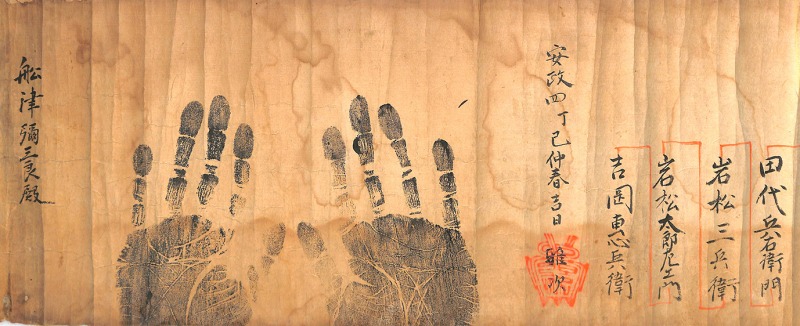 田代兵右衛門
岩松三兵衛
岩松太郎左衛門
吉岡恵兵衛
安政四丁巳仲春吉日
舩津彌三良殿